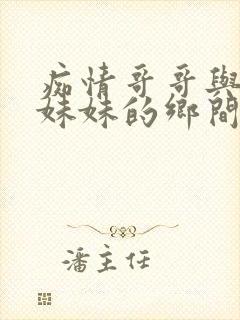 痴情哥哥與
妹妹的鄉間
潘主任